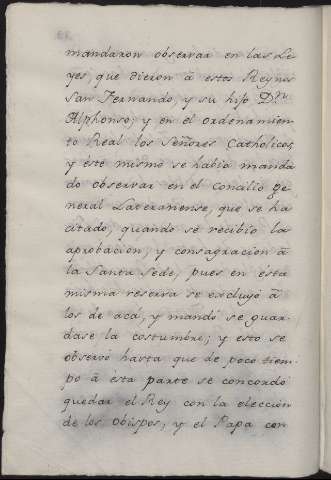 mandaron observar en las Le
yes, que dieron à estos Reynos
San Fernando, y su hijo Dⁿ.
Alphonso; y en el ordenamien
to Real los Señores Catholicos,
y esto mismo se habia manda
do observar en el Concilio ge
neral Lateranense, que se ha
citado, quando se recibio la
aprobacion, y consagracion à
la Santa Sede; pues en esta
misma reserva se excluyó à
los de acá, y mandó se guar-
dase la costumbre; y esto se
observó hasta que de poco tiem-
po à esta parte se concordó
quedar el Rey con la eleccion
de los obispos, y el Papa con